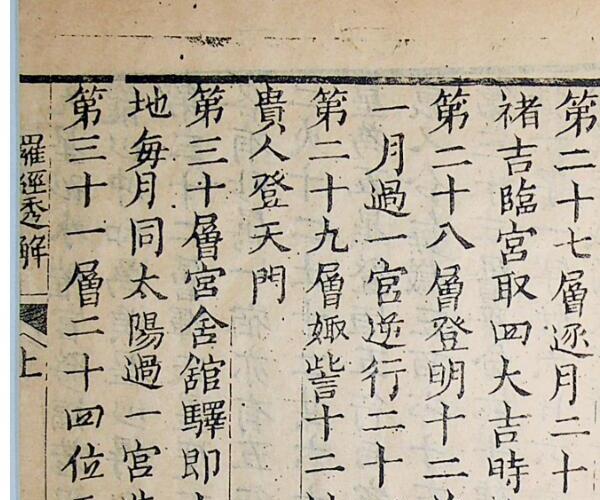 第二十七層逐月二十
褚吉臨宮取四大吉時
第二十八層登明十二
一月過一宮逆行二十
第二十九層娵訾十二
貴人登天門
第三十層宮舍舘驛即
地每月同太陽過一宮
第三十一層二十四位
羅經秀解
上